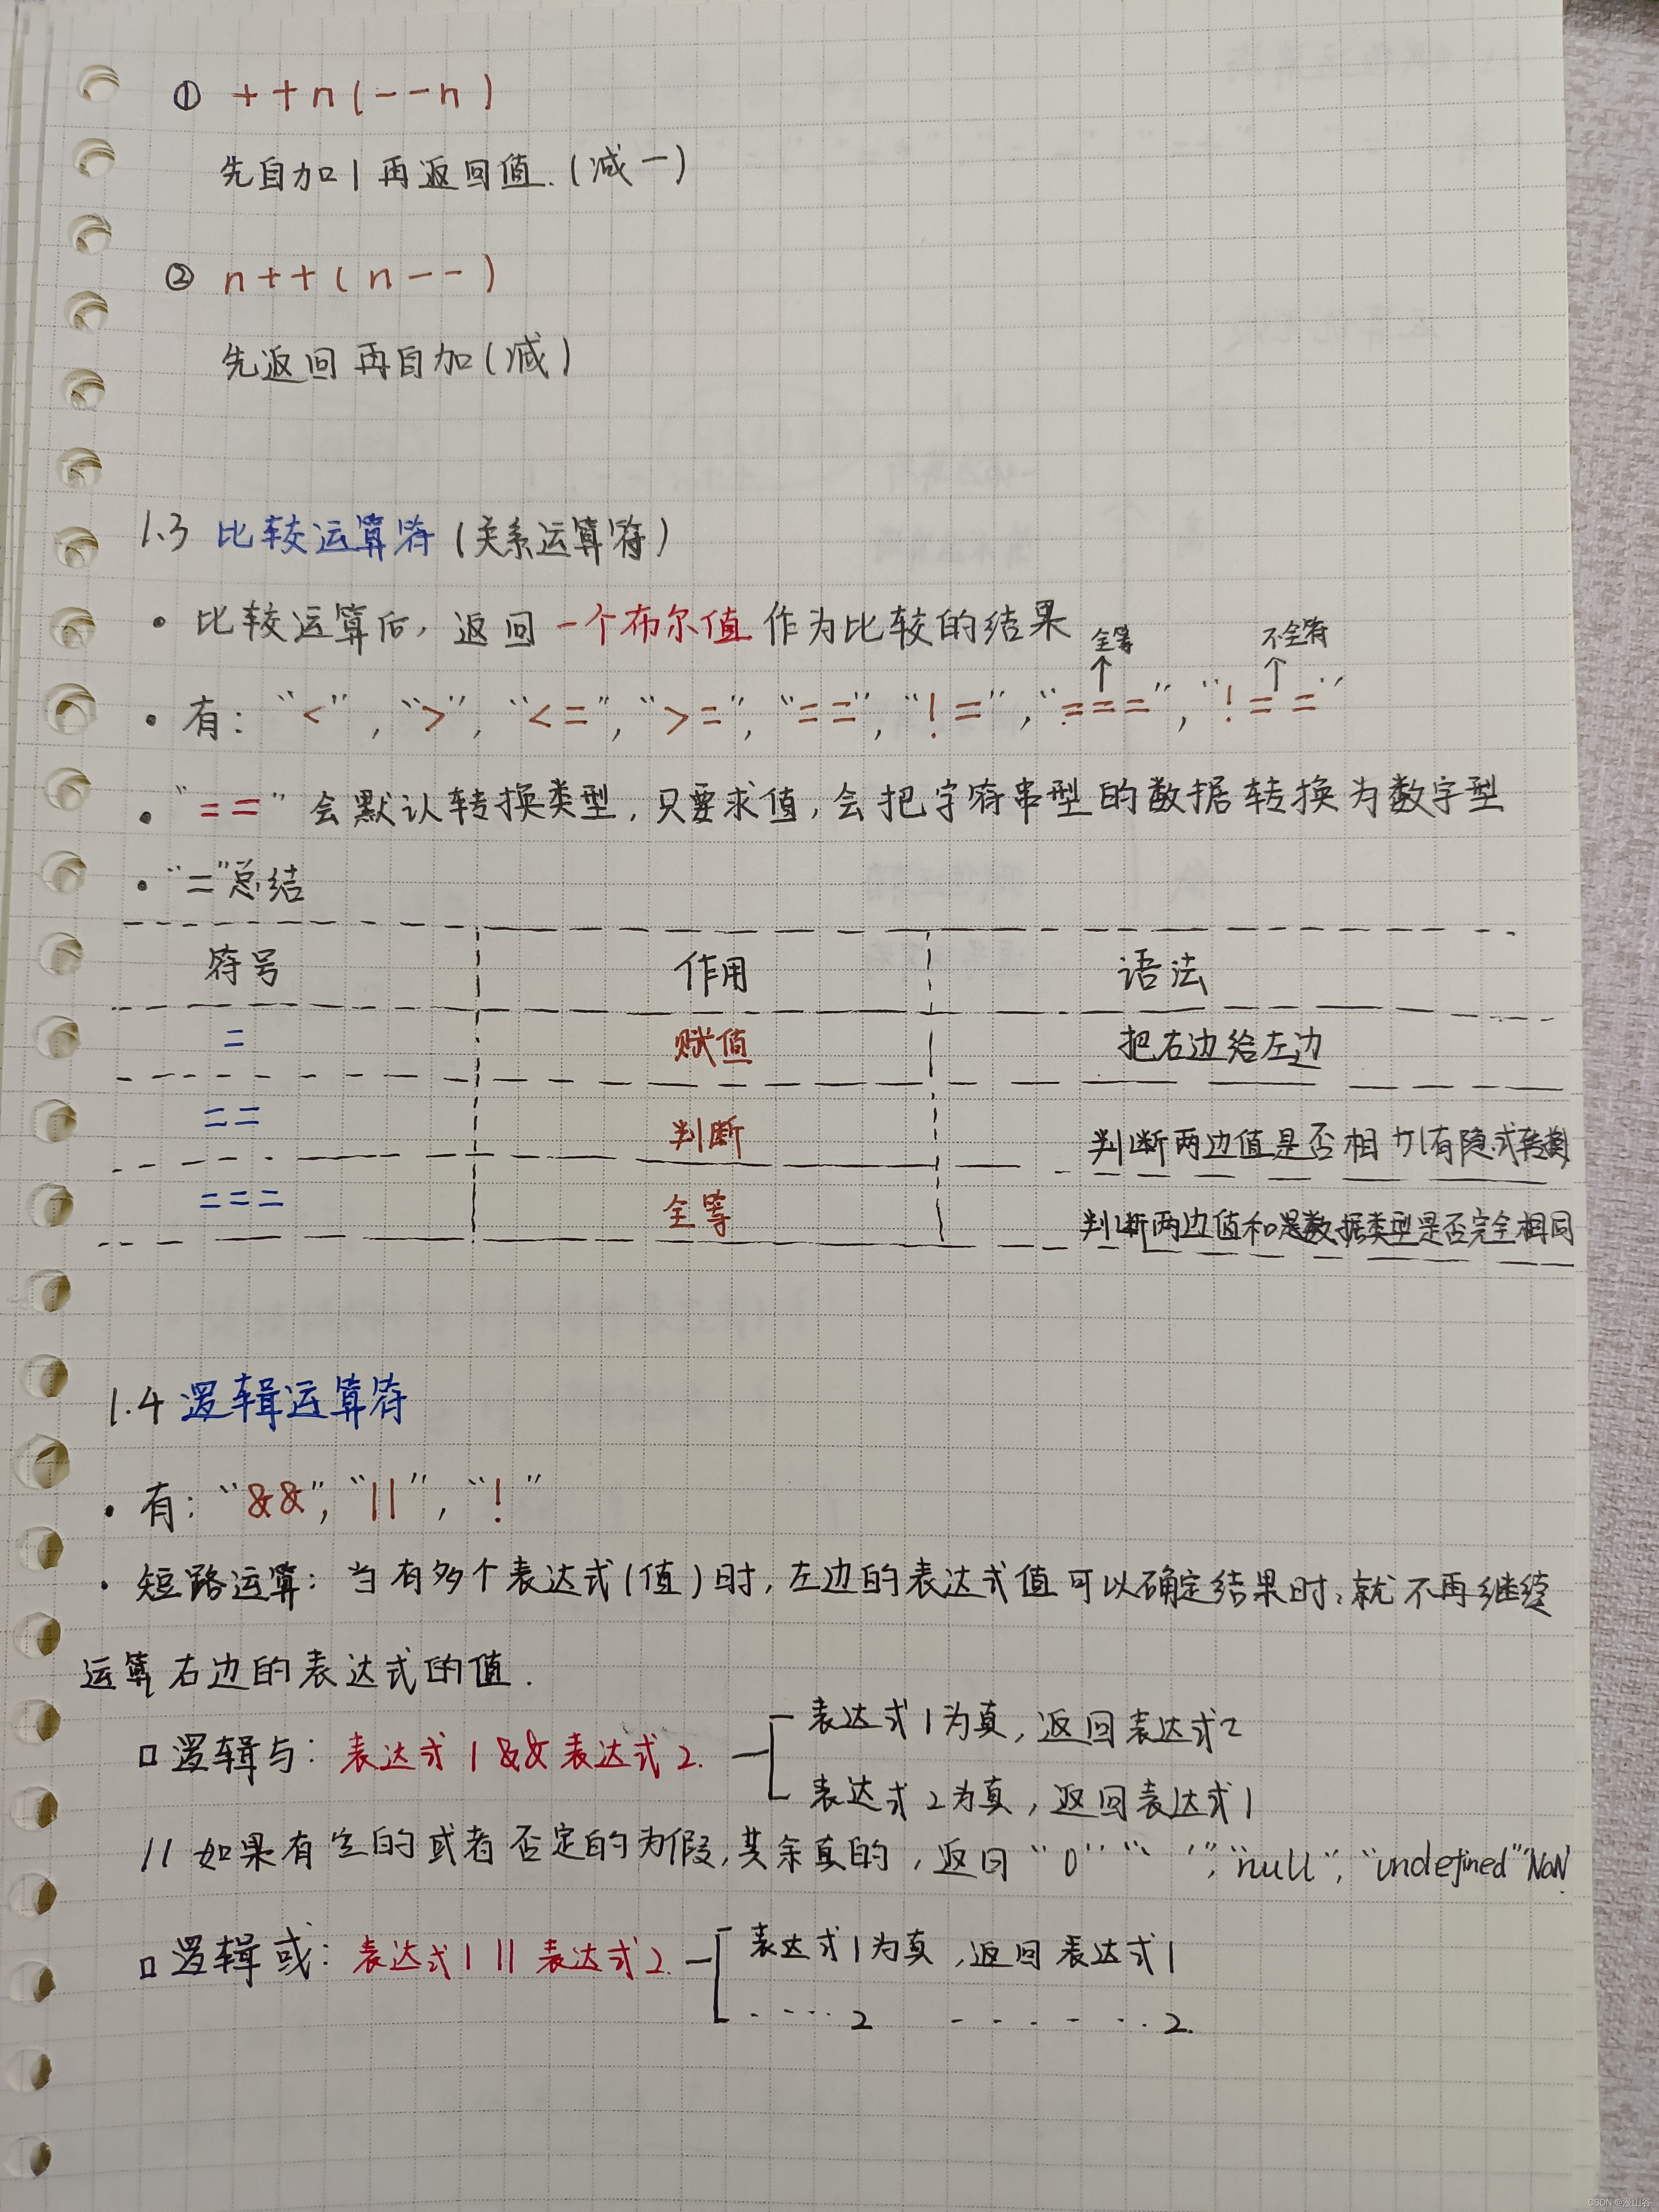 ① ++n(--n)
先自加1再返回值.(减一)
② n++(n--)
先返回再自加(减)
1.3 比较运算符(关系运算符)
• 比较运算后,返回一个布尔值作为比较的结果
全等 不全等
• 有: “<”, “>”, “<=”, “>=”, “==”, “!=”, “===”, “!==”
• “==”会默认转换类型,只要求值,会把字符串型的数据转换为数字型
• “=”总结
符号 作用 语法
= 赋值 把右边给左边
== 判断 判断两边值是否相 有隐式转换
=== 全等 判断两边值和 数据类型是否完全相同
1.4 逻辑运算符
• 有: “&&”, “||”, “!”
• 短路运算: 当有多个表达式(值)时,左边的表达式值可以确定结果时,就不再继续
运算右边的表达式的值.
表达式1为真,返回表达式2
□ 逻辑与: 表达式1 && 表达式2.
表达式2为真,返回表达式1
// 如果有空的或者否定的为假,其余真的,返回“0”“ ”,“null”,“undefined”NaN
表达式1为真,返回表达式1
□ 逻辑或: 表达式1 || 表达式2.
.....2 ......2.
CSDN @漫山谷